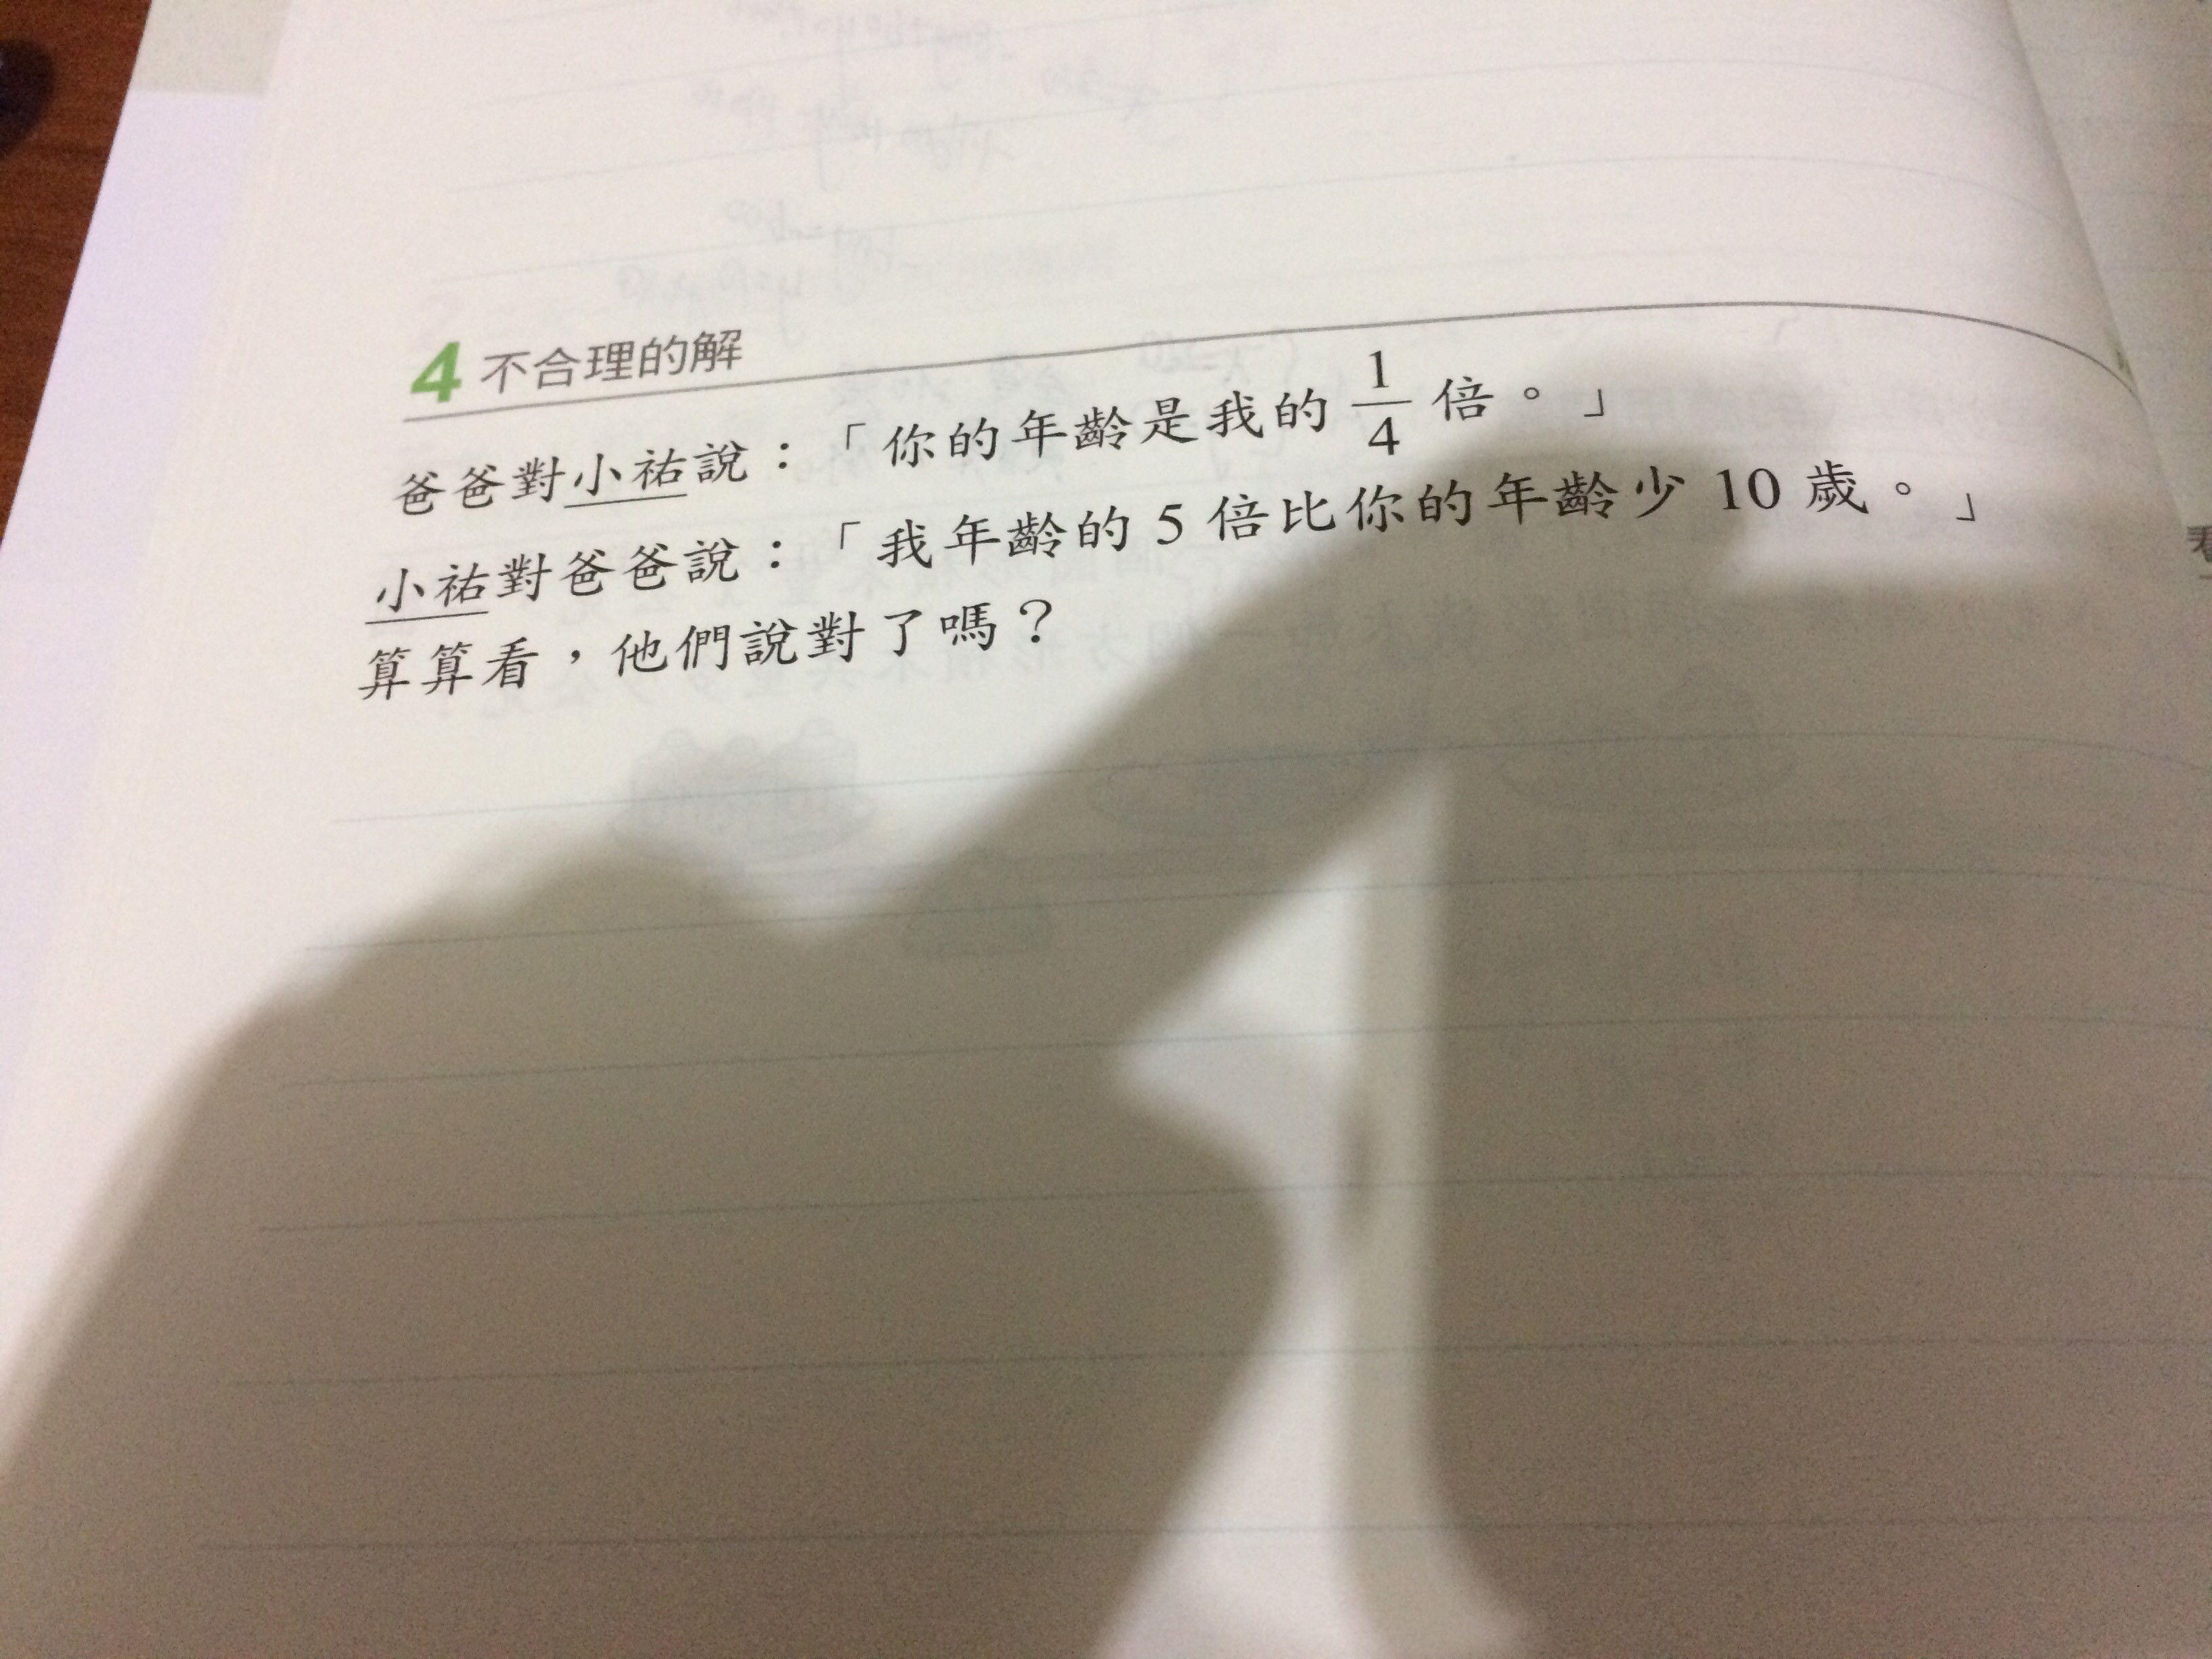 4 不合理的解
爸爸對小祐說：「你的年齡是我的 1/4 倍。」
小祐對爸爸說：「我年齡的 5 倍比你的年齡少 10 歲。」
算算看，他們說對了嗎？